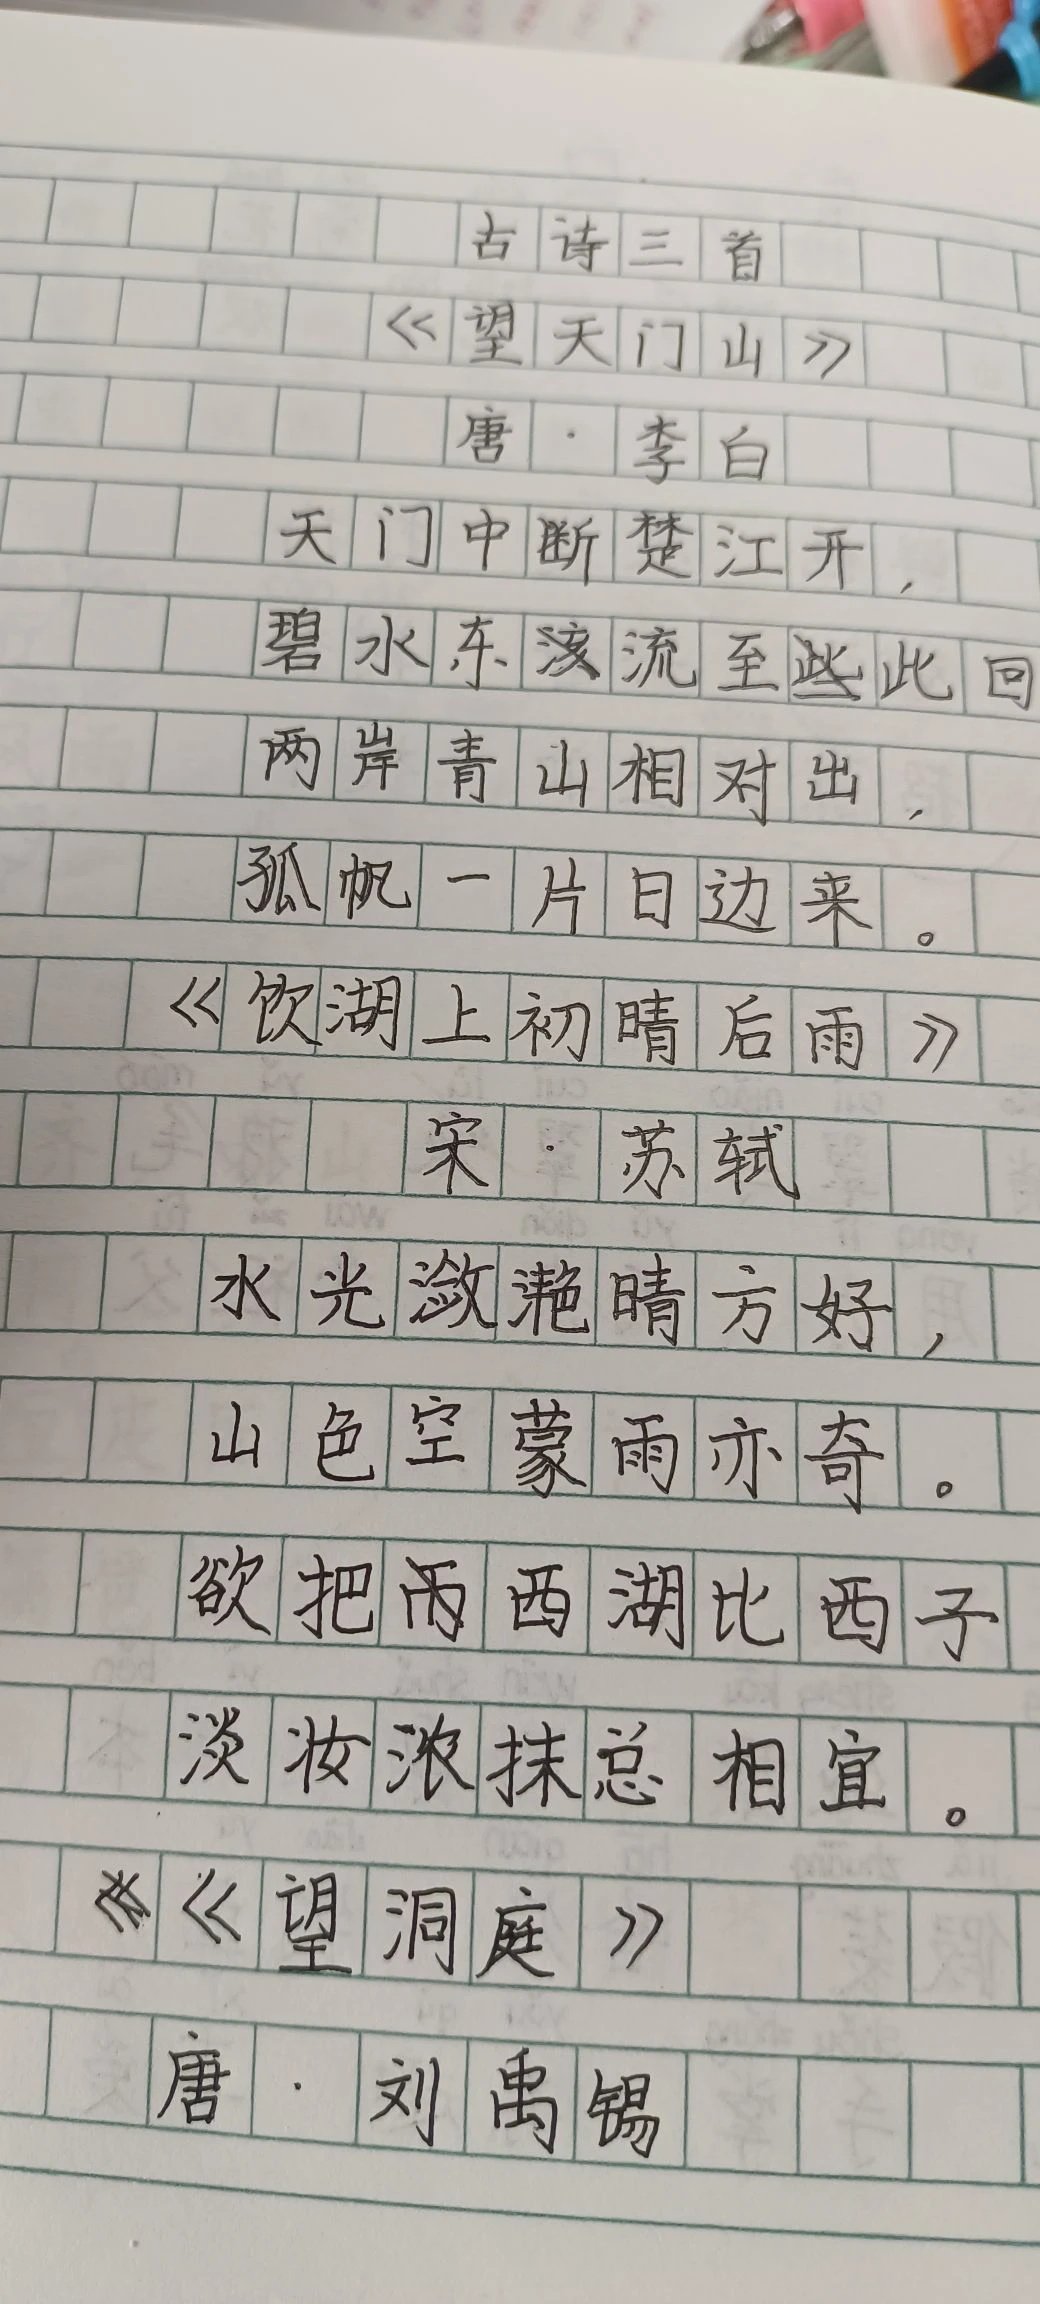 古诗三首
《望天门山》
唐·李白
天门中断楚江开,
碧水东流至此回
两岸青山相对出,
孤帆一片日边来。
《饮湖上初晴后雨》
宋·苏轼
水光潋滟晴方好,
山色空蒙雨亦奇。
欲把西湖比西子
淡妆浓抹总相宜。
《望洞庭》
唐·刘禹锡